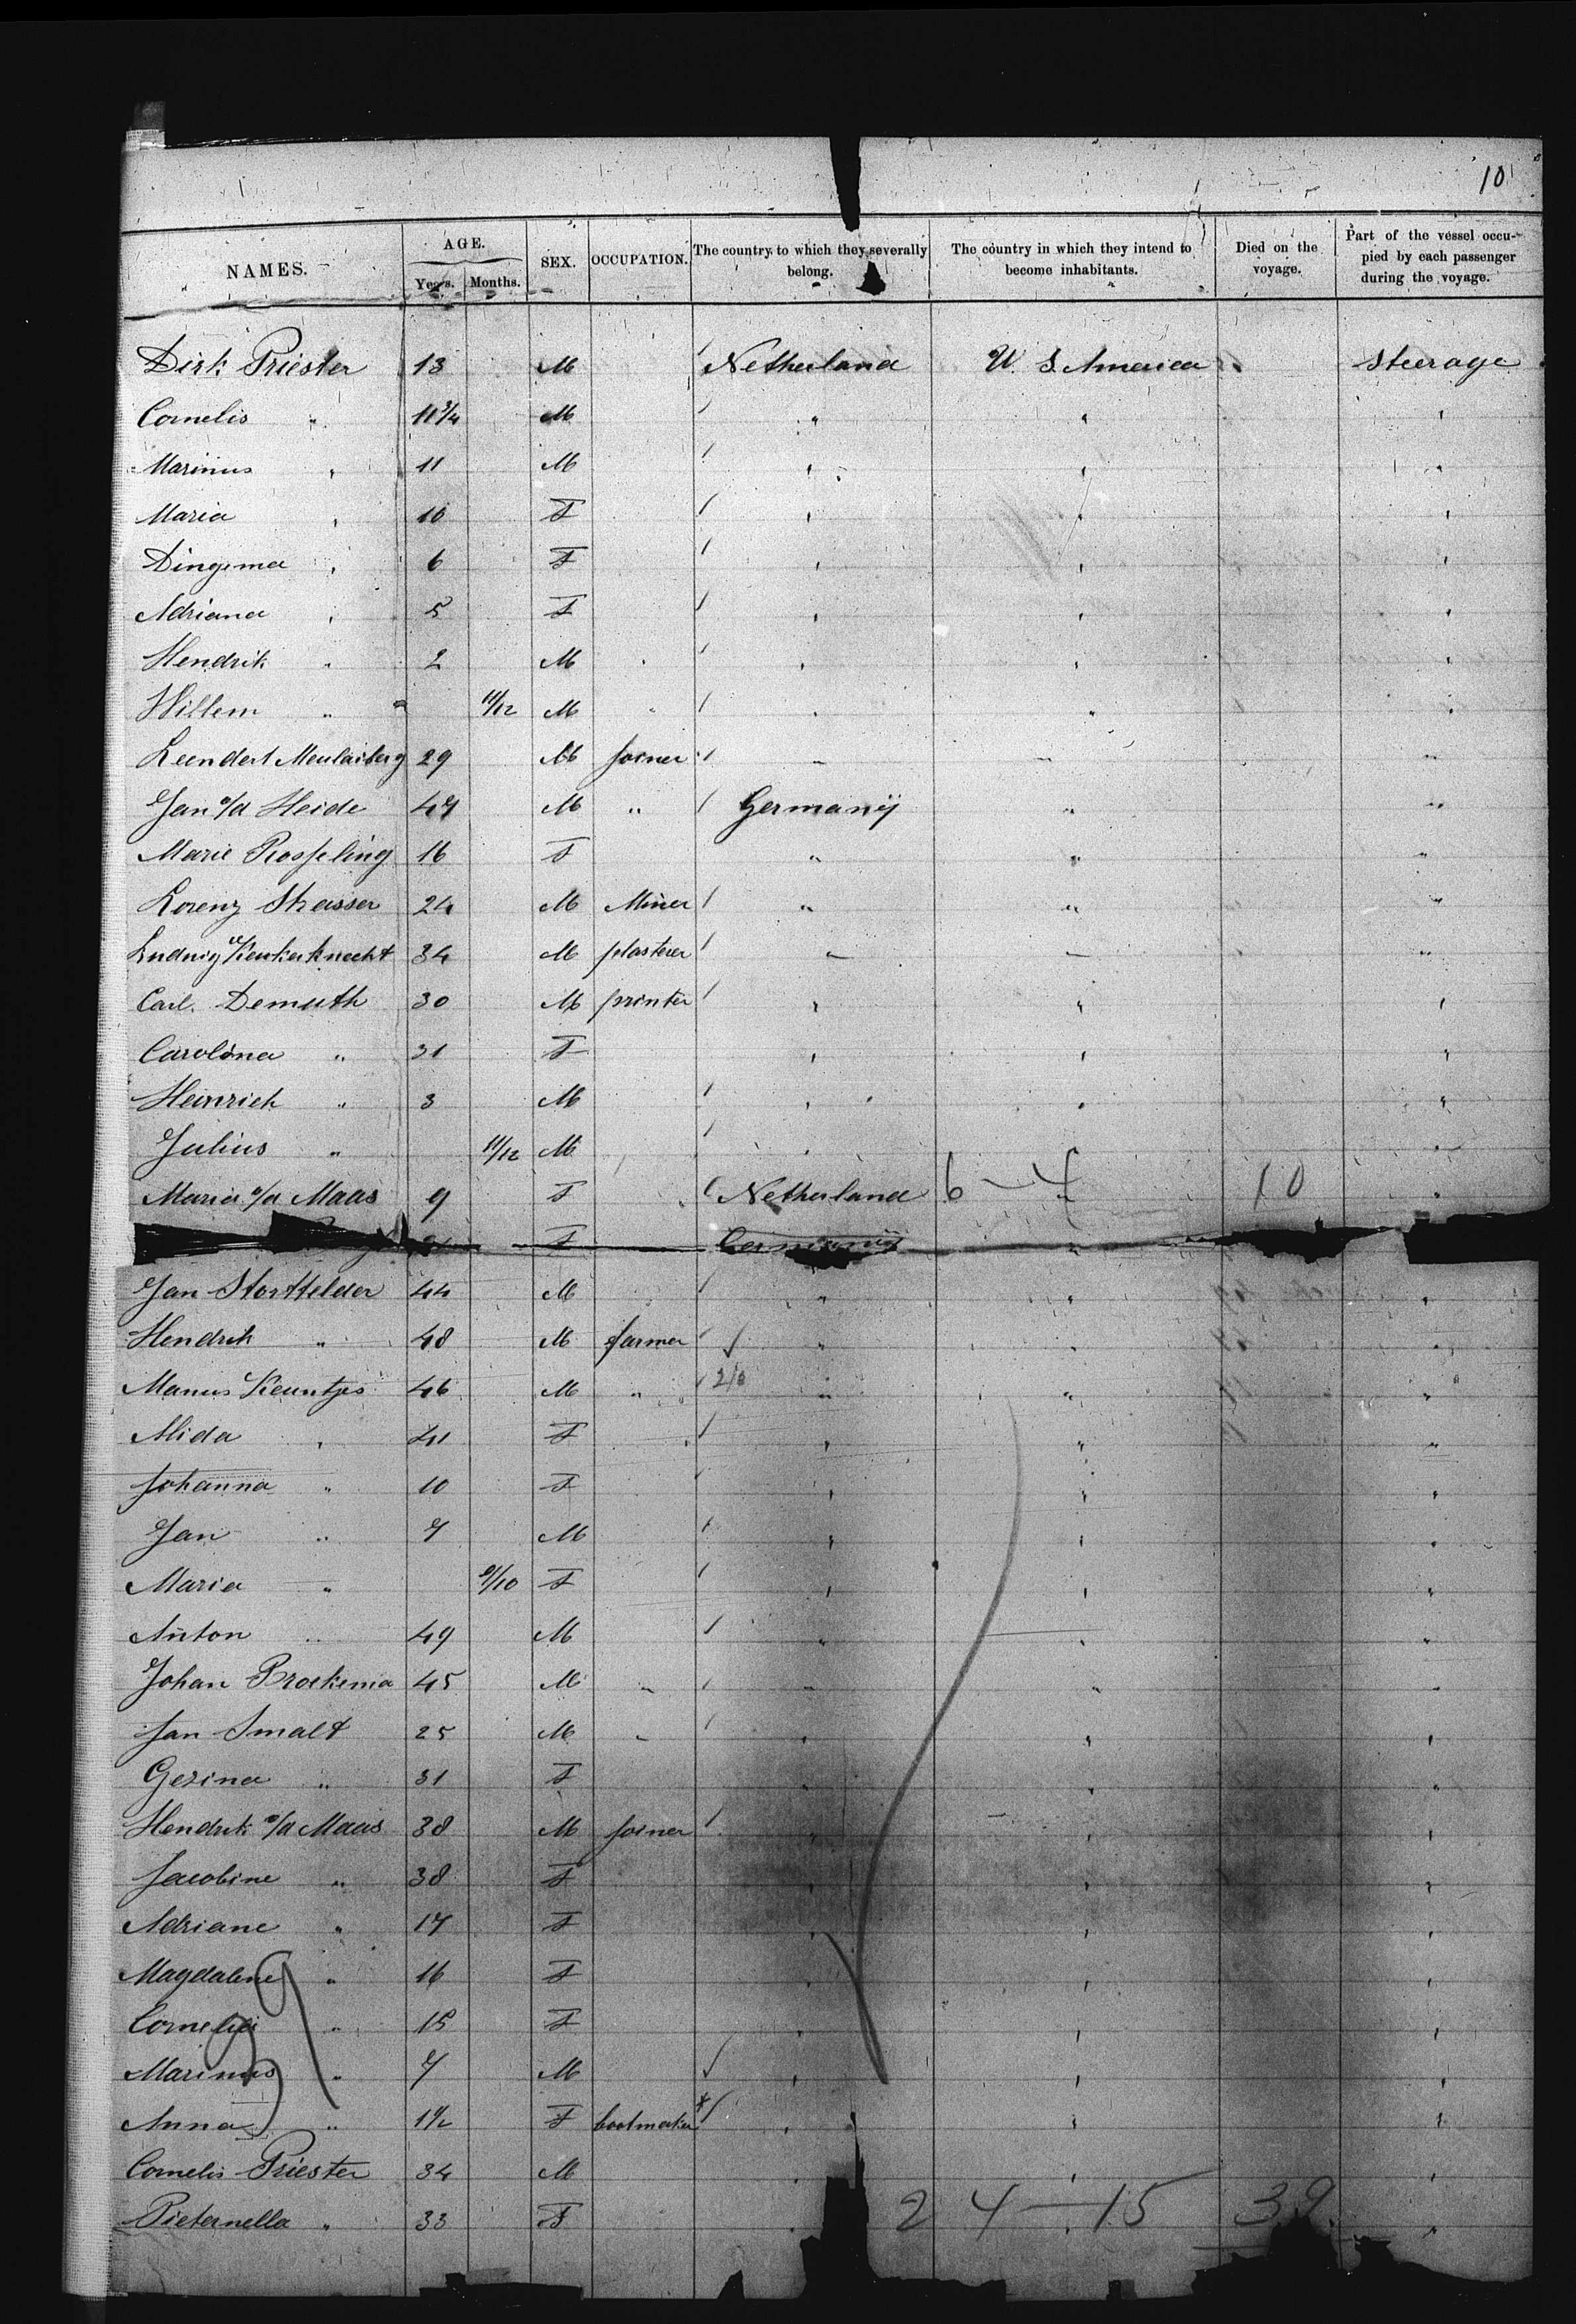 10
NAMES. AGE. Years. Months. SEX. OCCUPATION. The country to which they severally belong. The country in which they intend to become inhabitants. Died on the voyage. Part of the vessel occupied by each passenger during the voyage.
Dirk Priester 13 M Netherland U. S. America Steerage
Cornelis " 11 3/4 M " " "
Marinus " 11 M " " "
Maria " 10 F " " "
Dingema " 6 F " " "
Adriana " 5 F " " "
Hendrik " 2 M " " "
Willem " 11/12 M " " "
Leendert 29 M joiner " " "
Jan v/d Heide 47 M " Germanÿ " "
Marie 16 F " " "
Lorenz 24 M Miner " " "
Ludwig 34 M plasterer " " "
Carl Demuth 30 M printer " " "
Carolina " 31 F " " "
Heinrich " 3 M " " "
Julius " 11/12 M " "
Maria v/d Maas 9 F Netherland 6 - 4 10 "
F Germanÿ "
Jan Stortelder 44 M " " "
Hendrik " 48 M farmer " " "
Manus Keuntjes 46 M " " " "
Alida " 41 F " " "
Johanna " 10 F " " "
Jan " 7 M " " "
Maria " 9/10 F " " "
Anton " 49 M " " "
Johan 45 M " " " "
Jan Smalt 25 M " " " "
Gezina " 31 F " " "
Hendrik v/d Maas 38 M joiner " " "
Jacobine " 38 F " " "
Adriane " 17 F " " "
Magdalene " 16 F " " "
Cornelia " 15 F " " "
Marinus " 7 M " " "
Anna " 1 1/2 F bootmaker " " "
Cornelis Priester 34 M " " "
Pieternella " 33 F 24 - 15 39 "